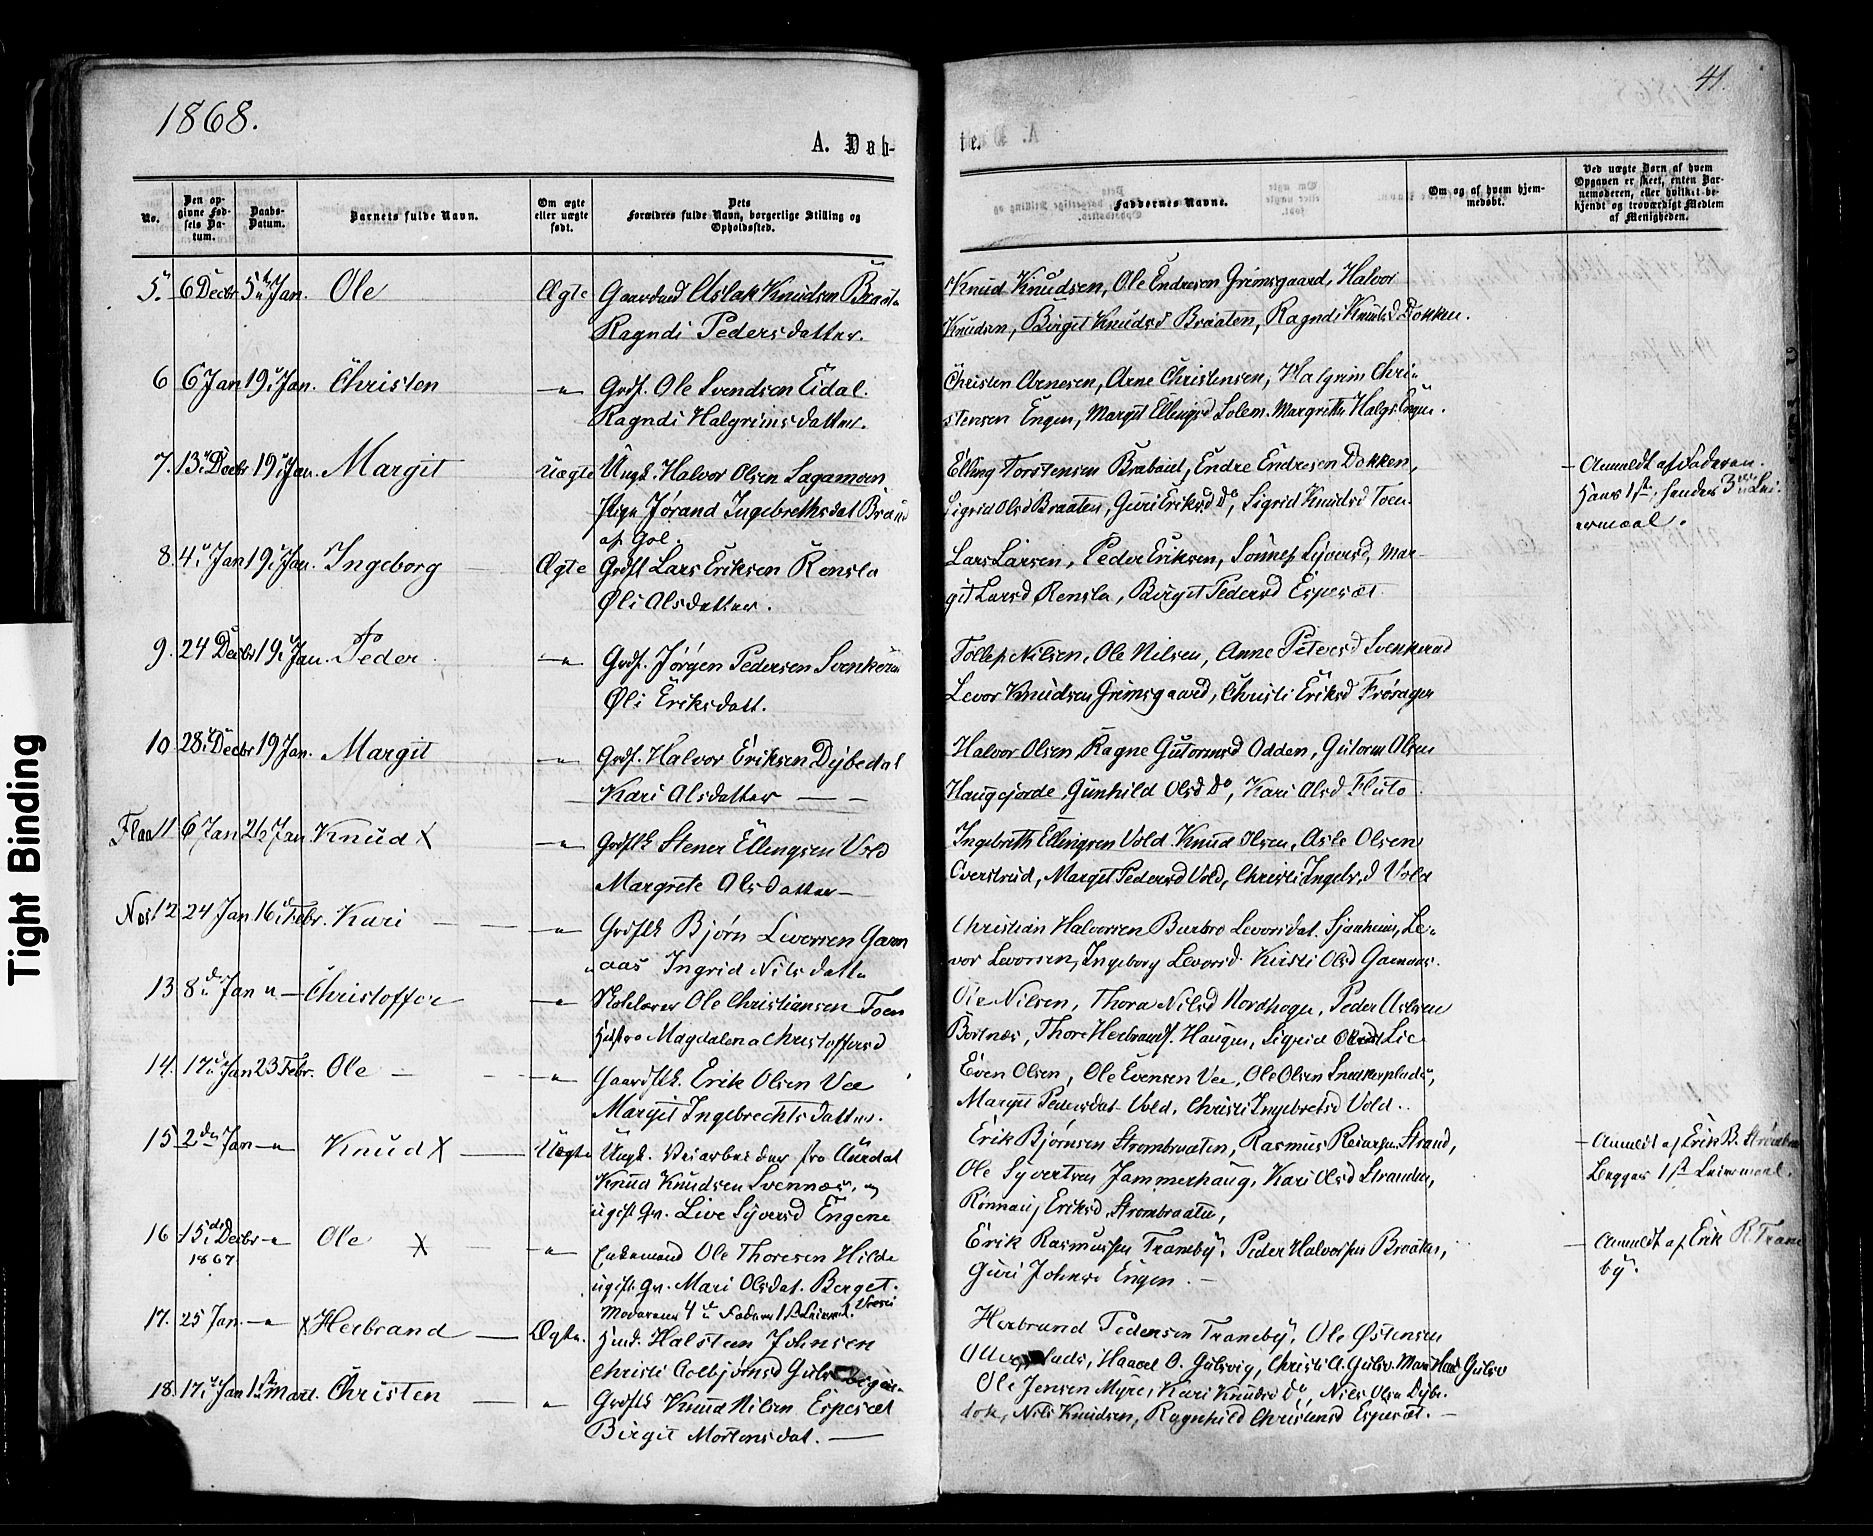 1868.
41.
A. Døb-
te.
No.
Den op-
givne Fød-
sels Da-
tum.
Daabs-
Datum.
Barnets fulde Navn.
Om ægte
eller uægte
født.
Dets
Forældres fulde Navn, borgerlige Stilling og
Opholdssted.
Faddernes Navne.
Om og af hvem hjem-
medøbt.
Ved uægte Børn af hvem
Opgaven er skeet, enten Bar-
nemoderen, eller hvilket be-
kjendt og troværdigt Medlem
af Menigheden.
5. 6 Decbr 5 Jan. Ole Ægte Gaardmd Aslak Knudsen
Ragndi Pedersdatter.
Knud Knudsen, Ole Endresen Grimsgaard, Halvor
Knudsen, Birgit Knudsd Braaten, Ragndi Knudsd Dokken.
6 6 Jan 19 Jan. Christen —"— Grdf. Ole Svendsen Eidal.
Ragndi Halgrimsdatter.
Christen Arnesen, Arne Christensen, Halgrim Chri-
stensen Engen, Margit Ellingsd Solem. Margrethe Halgs. Engen.
7. 13 Decbr 19 Jan. Margit Uægte Ungk. Halvor Olsen Sagamoen
Pige Jørand Ingebrethsdat
af Gol.
Elling Torstensen, Endre Endresen Dokken,
Sigrid Olsd Braaten, Guri Eriksd Do, Sigrid Knudsd Toen.
Anmeldt af Faderen.
Hans 1ste, hendes 3die Lei-
ermaal.
8. 4 Jan 19 Jan. Ingeborg Ægte Grdf Lars Eriksen Rensla
Øli Olsdatter.
Lars Larsen, Peder Eriksen, Sønnef Syversd, Mar-
git Larsd Rensla, Birgit Pedersd Espesæt.
9. 24 Decbr 19 Jan. Peder —"— Grdf. Jørgen Pedersen
Øli Eriksdatt.
Tollef Nilsen, Ole Nilsen, Anne Petersd Svenkerud
Levor Knudsen Grimsgaard, Christi Eriksd Frøsager
10 28 Decbr 19 Jan. Margit —"— Grdf. Halvor Eriksen Dybedal
Kari Olsdatter — —
Halvor Olsen, Ragne Gutormsd Odden, Gutorm Olsen
Haugejorde, Gunhild Olsd Do, Kari Olsd Fluto
Flaa 11 6 Jan 26 Jan Knud X —"— Grdf Stener Ellingsen Vold
Margrete Olsdatter —
Ingebreth Ellingsen Vold. Knud Olsen, Asle Olsen
Margit Pedersd Vold, Christi Ingebr.d Vold
Nes 12 24 Jan 16 Febr. Kari —"— Grdf Bjørn Levorsen Garn
aas Ingrid Nilsdatte
Christian Halvorsen Levorsdat. Sjanheim, Le-
vor Levorsen, Ingeborg Levorsd. Kirsti Olsd Garnaas.
13 8 Jan " — Christoffer —"— Skolelærer Ole Christiansen Toen
Hustro Magdalena Christoffersd
Ole Nilsen, Thora Nilsd Nordhagen, Peder Aslesen
Børtnes, Thore Herbrands. Haugen, Sigrid Lie
14. 17 Jan 23 Febr. Ole — —"— Gaardf. Erik Olsen Vee
Margit Ingebrechtsdatter.
Even Olsen, Ole Evensen Vee, Ole Olsen Snekkerplads,
Margit Pedersdat. Vold, Christi Ingebretsd Vold.
15 2den Jan —"— Knud X — Uægte Ungk. Veiarbeider fra Aurdal
Knud Knudsen Svennæs, og
ugift Qv. Live Syversd Engene
Erik Bjørnsen Strombraaten, Rasmus Strand,
Ole Syvertsen Jammerhaug, Kari Olsd Stranden,
Rønnaug Eriksd Strombraaten,
Anmeldt af Erik B.
Begges 1ste Leiermaal.
16 15 Decbr —"— Ole X —"— Enkemand Ole Thoresen Hilde
1867
ugift Qv. Mari Olsdat. Berget.
Moderens 4de Faderens 1ste Leierm.
Erik Rasmussen Traneby, Peder Halvorsen Braaten,
Guri Johnsd Engen. —
Anmeldt af Erik R. Trane
by.
17. 25 Jan. —"— X Herbrand — Ægte. Halsten Johnsen
Christi Colbjørnsd
Herbrand Pedersen Traneby, Ole Østensen
Haavel O. Gulsvig, Christi A. Gulsv.
18. 17 Jan 1ste Marts. Christen — " Grdf Knud Nilsen Espesæt
Birgit Mortensdat. —
Ole Jensen Myre, Kari Knudsd Do, Nils Olsen Dybe-
dok, Nils Knudsen, Ragnhild Christensd Espesæt. —
Tight Binding